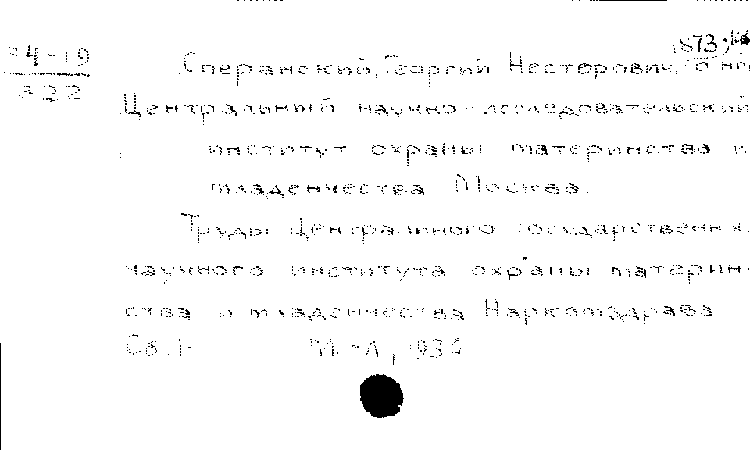 1873;
24-19
822
Сперанский, Георгий Несторович,
Центральный научно-исследовательский
институт охраны материнства и
младенчества Москва.
Труды Центрального государственн
научного института охраны материн-
ства и младенчества Наркомздрава
Сб. 1- М.-Л., 193